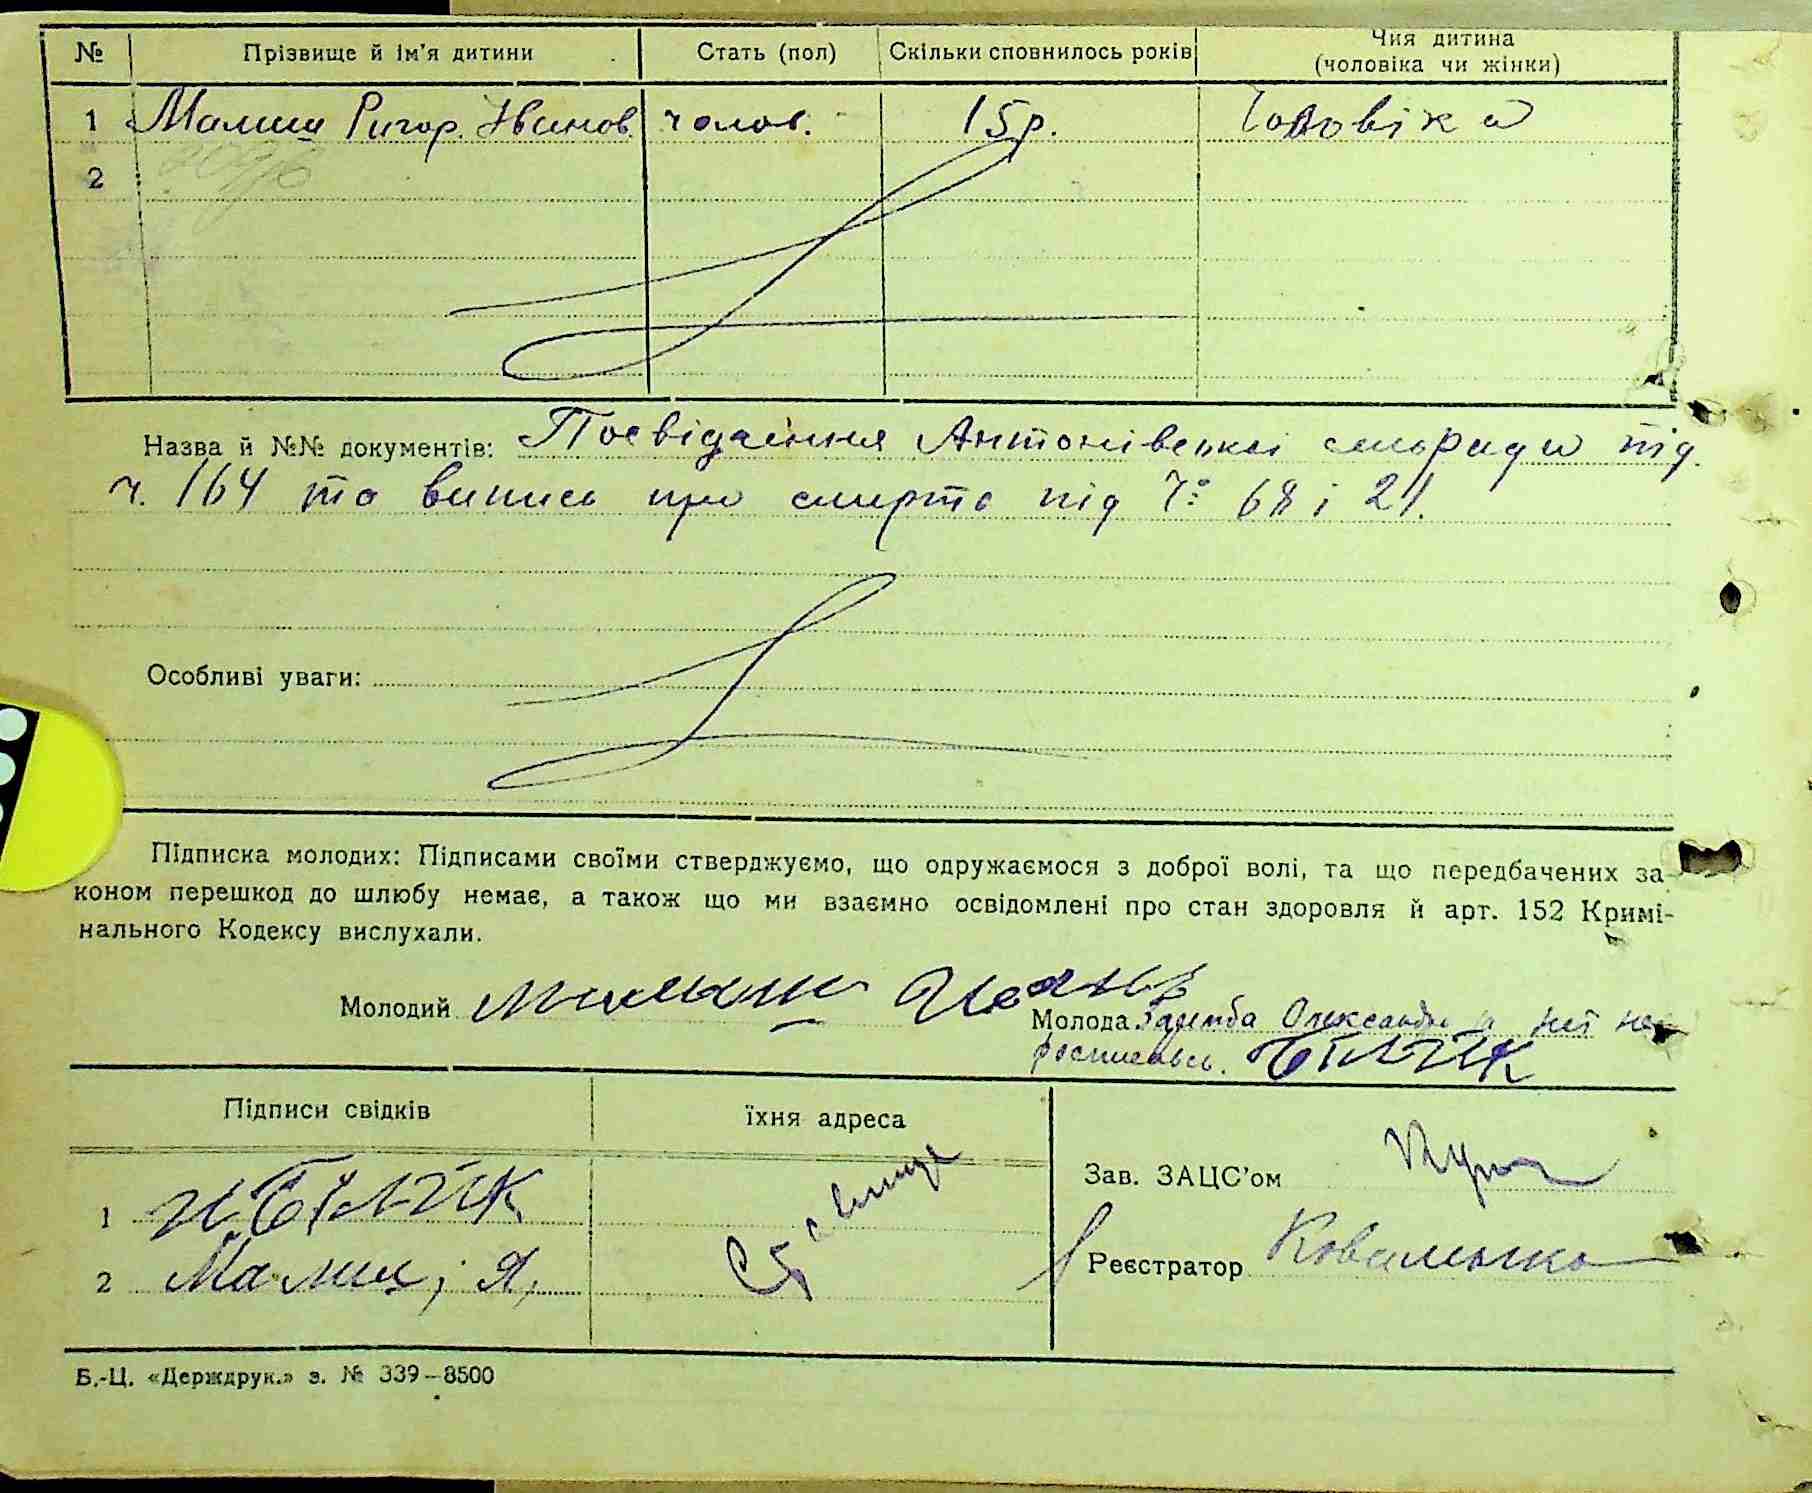 № Прізвище й ім'я дитини Стать (пол) Скільки сповнилось років Чия дитина
(чоловіка чи жінки)
1 Малиш Ригор. Іванов. чолов. 15 р. Чоловіка
2
Назва й №№ документів: Посвідчення Антонівської сільради під
ч. 164 та випись про смерть під ч: 68 і 21.
Особливі уваги:
Підписка молодих: Підписами своїми стверджуємо, що одружаємося з доброї волі, та що передбачених за-
коном перешкод до шлюбу немає, а також що ми взаємно освідомлені про стан здоровля й арт. 152 Кримі-
нального Кодексу вислухали.
Молодий Малыш Иван
Молода Олександра
Білик
Підписи свідків їхня адреса
Зав. ЗАЦС'ом
1 И. Білик
2 Малиш, Я, Ставище
Реєстратор Ковалько
Б.-Ц. «Держдрук.» з. № 339—8500